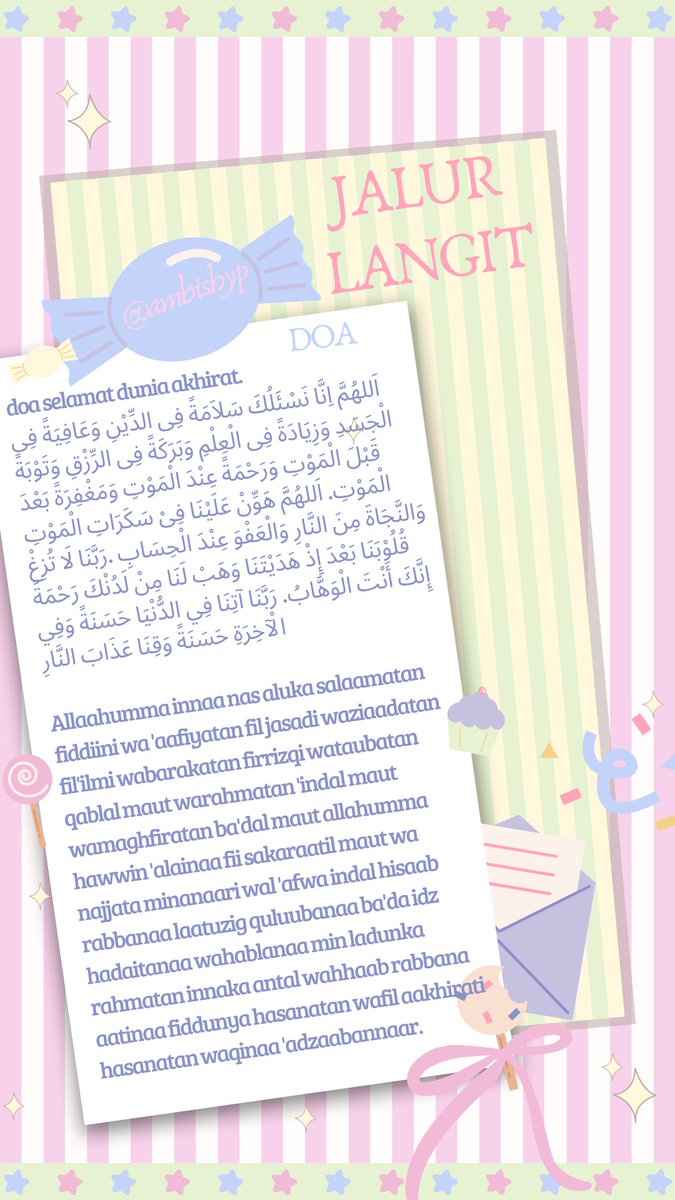 JALUR
LANGIT
@ambisbyp
DOA
doa selamat dunia akhirat.
اَللهُمَّ اِنَّا نَسْئَلُكَ سَلَامَةً فِى الدِّيْنِ وَعَافِيَةً فِى
الْجَسَدِ وَزِيَادَةً فِى الْعِلْمِ وَبَرَكَةً فِى الرِّزْقِ وَتَوْبَةً
قَبْلَ الْمَوْتِ وَرَحْمَةً عِنْدَ الْمَوْتِ وَمَغْفِرَةً بَعْدَ
الْمَوْتِ. اَللهُمَّ هَوِّنْ عَلَيْنَا فِىْ سَكَرَاتِ الْمَوْتِ
وَالنَّجَاةَ مِنَ النَّارِ وَالْعَفْوَ عِنْدَ الْحِسَابِ .رَبَّنَا لَا تُزِغْ
قُلُوْبَنَا بَعْدَ إِذْ هَدَيْتَنَا وَهَبْ لَنَا مِنْ لَدُنْكَ رَحْمَةً
إِنَّكَ أَنْتَ الْوَهَّابُ. رَبَّنَا آتِنَا فِي الدُّنْيَا حَسَنَةً وَفِي
الْآخِرَةِ حَسَنَةً وَقِنَا عَذَابَ النَّارِ
Allaahumma innaa nas aluka salaamatan
fiddiini wa 'aafiyatan fil jasadi waziaadatan
fil'ilmi wabarakatan firrizqi wataubatan
qablal maut warahmatan 'indal maut
wamaghfiratan ba'dal maut allahumma
hawwin 'alainaa fii sakaraatil maut wa
najjata minanaari wal 'afwa indal hisaab
rabbanaa laatuzig quluubanaa ba'da idz
hadaitanaa wahablanaa min ladunka
rahmatan innaka antal wahhaab rabbana
aatinaa fiddunya hasanatan wafil aakhirati
hasanatan waqinaa 'adzaabannaar.